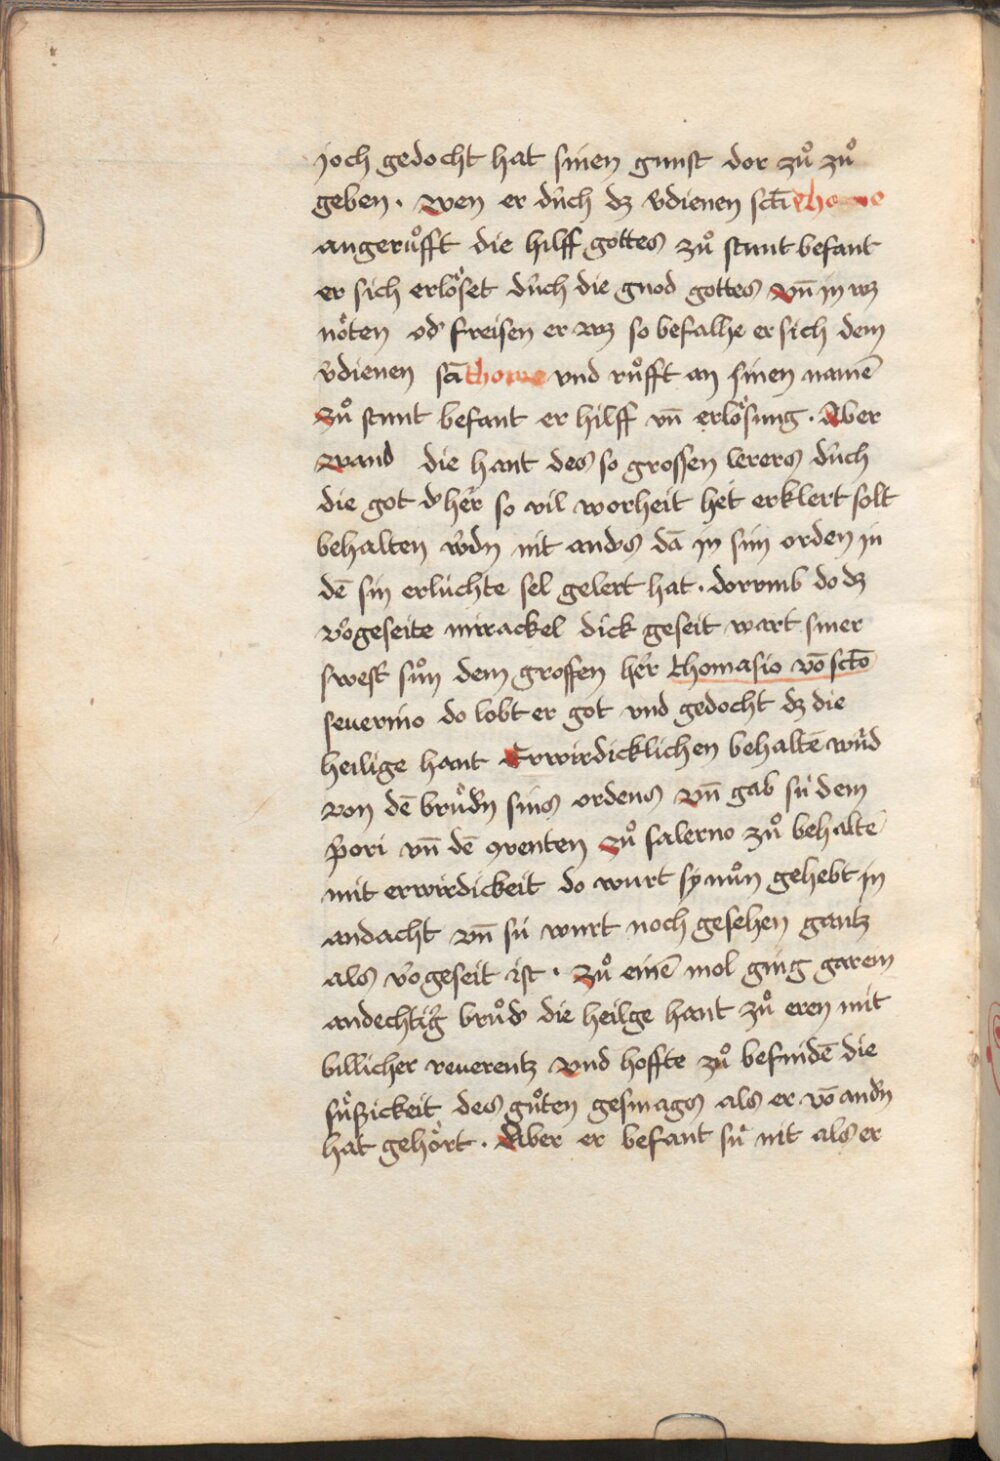 joch gedocht hat sinen gunst dor zuͦ zuͦ
geben . wen er duͤch dz v̓dienen sct̄i thome
angeruͦfft die hilff gottes zuͦ stunt befant
er sich erloͤset duͤch die gnod gottes vn̄ in wz
noͤten od̓ freisen er wz so befalhe er sich dem
v̓dienen sc̄i thome vnd ruͦfft an sinen namē
Zuͦ stunt befant er hilff vn̄ erloͤsung . Aber
wand die hant des so grossen lerers duͤch
die got d̓ her̓ so vil worheit het erklert solt
behalten w̓dn nit and̓s dā in sim orden in
dē sin erluchte sel gelert hat . dorvmb do dz
vo̓geseite mirackel dick geseit wart siner
swest̓ suͦn dem grossen her̓ thomasio vō sct̄o
seuerino do lobt er got vnd gedocht dz die
heilige hant Erwirdicklichen behaltē wuͤd
von dē bruͤd̓n sins ordens vn̄ gab sú dem
p̓ori vn̄ dē ꝯuenten Zuͦ salerno zuͦ behaltē
mit erwirdickeit do wurt sy nuͦn gehebt in
andacht vn̄ sú wurt noch gesehen gantz
als vo̓geseit ist . Zuͦ einē mol ging gar ein
andechtig̓ bruͦd̓ die heilge hant zuͦ eren mit
billicher reuerentz vnd hoffte zuͦ befindē die
suͤßickeit des guͦten gesmags als er vō and̓n
hat gehoͤrt . Aber er befant sú nit als er